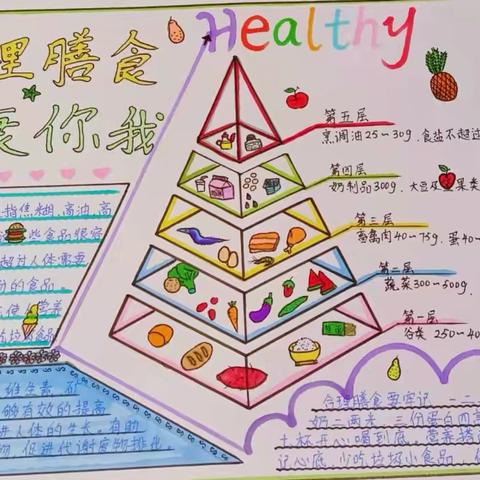 理膳食
Healthy
你我
第五层
烹调油25~30g、食盐不超过
第四层
奶制品300g、大豆及 果类
第三层
畜禽肉40~75g、蛋40~
第二层
蔬菜300~500g、
第一层
谷类 250~40
指焦糊、高油、高
些食品很容
超过人体需要
的食品。
营养
垃圾食品
维生素
够有效的提高
进人体的生长，有助
物，促进代谢废物排化
合理膳食要牢记，一二
奶二两米，三份蛋白四
土杯开心喝到底，营养搭
记心底，少吃垃圾小食品，